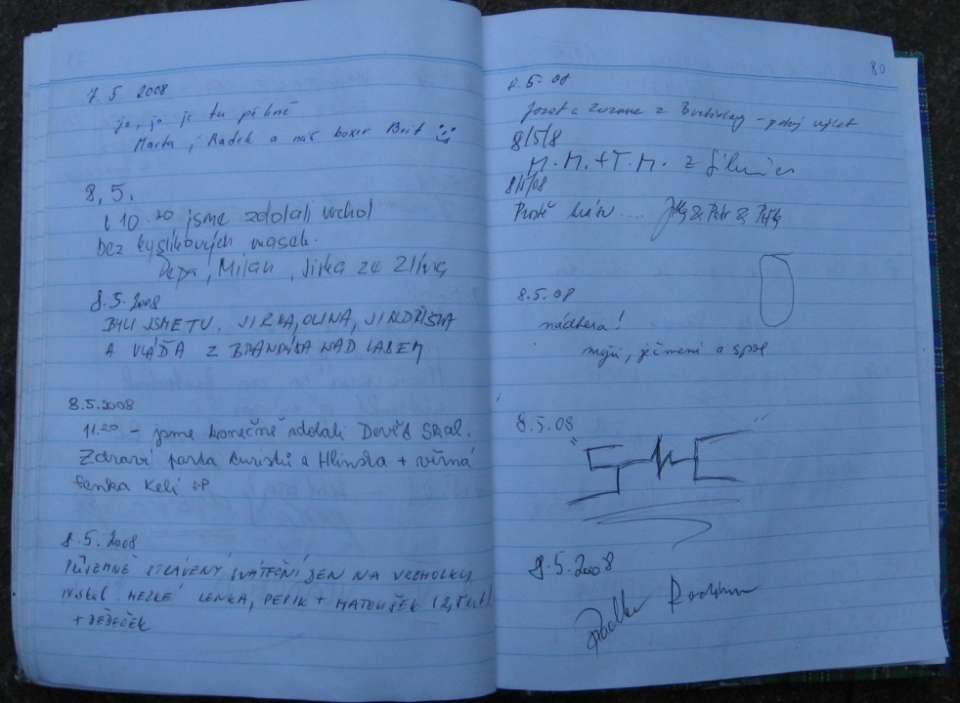 7.5. 2008
jo, jo je tu pěkně
Marta, Radek a náš boxer Brit
8.5.
v 10.20 jsme zdolali vrchol
bez kyslíkových masek.
Pepa, Milan, Jirka ze
8.5.2008
BYLI JSME TU. JIRKA, OLINA, JINDŘIŠKA
A VLÁĎA Z BRANDÝSA NAD LABEM
8.5.2008
11.20 – jsme konečně zdolali Devět Skal.
Zdraví parta turistů z Hlinska + věrná
fenka Keli :P
8.5.2008
PŘÍJEMNĚ STRÁVENÝ SVÁTEČNÍ DEN NA VRCHOLKU
SKAL LENKA, PEPÍK + MATOUŠEK (2,5
+ DĚDEČEK
80
8.5.08
Jozef a Zuzana z Bratislavy – výlet
8/5/8
M.M. + T.M. z
8/5/08
Prostě krása....
8.5.08
nádhera!
a spol
8.5.08
8.5.2008
Radka